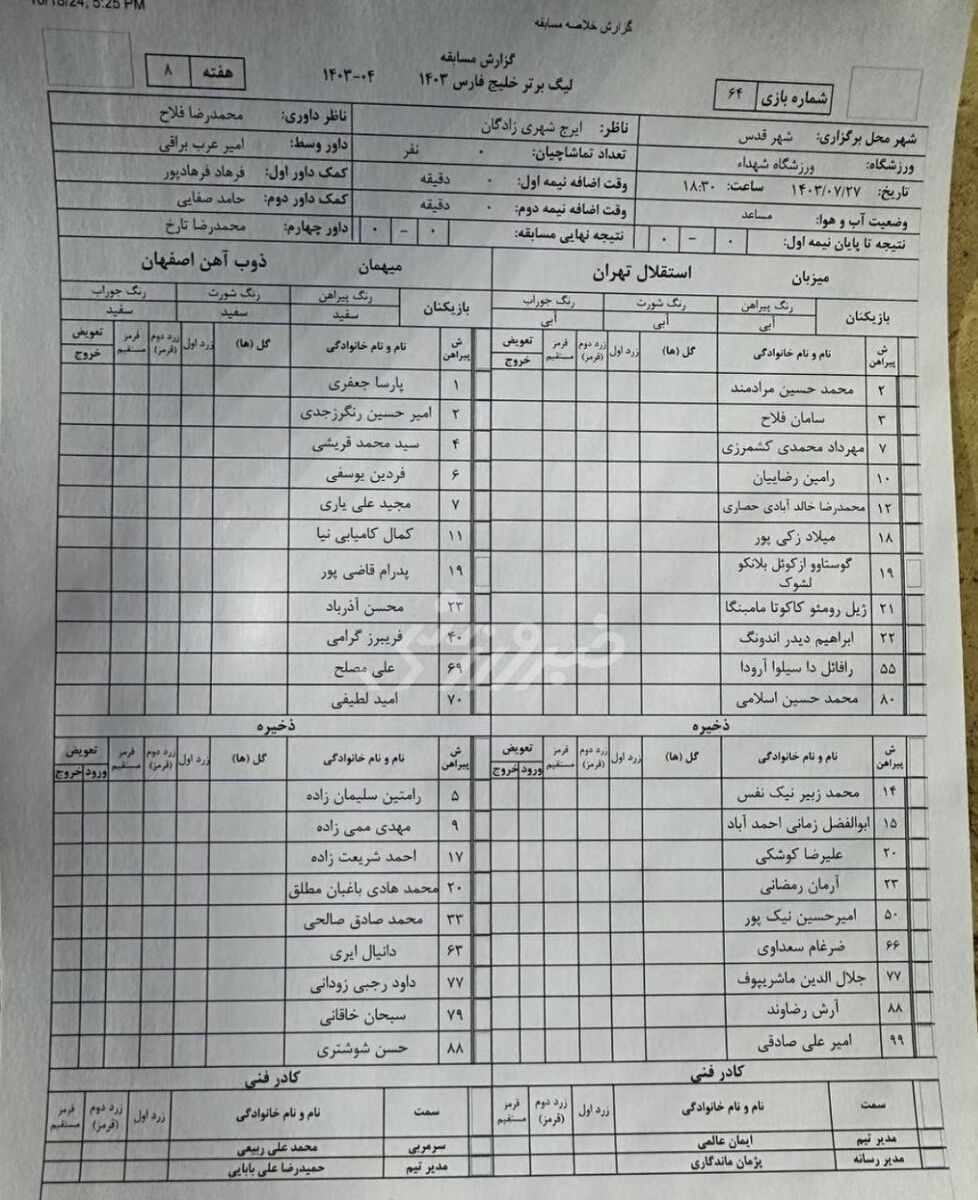 10/18/24, 5:25 PM
گزارش خلاصه مسابقه
گزارش مسابقه
لیگ برتر خلیج فارس ۱۴۰۳ ۱۴۰۳-۰۴
شماره بازی ۶۴
هفته ۸
شهر محل برگزاری: شهر قدس
ورزشگاه: ورزشگاه شهداء
تاریخ: ۱۴۰۳/۰۷/۲۷ ساعت: ۱۸:۳۰
وضعیت آب و هوا: مساعد
نتیجه تا پایان نیمه اول: ۰ - ۰
ناظر: ایرج شهری زادگان
تعداد تماشاچیان: ۰ نفر
وقت اضافه نیمه اول: ۰ دقیقه
وقت اضافه نیمه دوم: ۰ دقیقه
نتیجه نهایی مسابقه: ۰ - ۰
ناظر داوری: محمدرضا فلاح
داور وسط: امیر عرب براقی
کمک داور اول: فرهاد فرهادپور
کمک داور دوم: حامد صفایی
داور چهارم: محمدرضا تارخ
میزبان استقلال تهران
بازیکنان رنگ پیراهن رنگ شورت رنگ جوراب
آبی آبی آبی
ش پیراهن نام و نام خانوادگی گل (ها) زرد اول زرد دوم (قرمز) قرمز مستقیم تعویض خروج
۲ محمد حسین مرادمند
۳ سامان فلاح
۷ مهرداد محمدی کشمرزی
۱۰ رامین رضاییان
۱۲ محمدرضا خالد آبادی حصاری
۱۸ میلاد زکی پور
۱۹ گوستاوو ازکوئل بلانکو لشوک
۲۱ ژیل رومئو کاکوتا مامبنگا
۲۲ ابراهیم دیدر اندونگ
۵۵ رافائل دا سیلوا آرودا
۸۰ محمد حسین اسلامی
ذخیره
ش پیراهن نام و نام خانوادگی گل (ها) زرد اول زرد دوم (قرمز) قرمز مستقیم تعویض ورود خروج
۱۴ محمد زبیر نیک نفس
۱۵ ابوالفضل زمانی احمد آباد
۲۰ علیرضا کوشکی
۲۳ آرمان رمضانی
۵۰ امیرحسین نیک پور
۶۶ ضرغام سعداوی
۷۷ جلال الدین ماشریپوف
۸۸ آرش رضاوند
۹۹ امیر علی صادقی
کادر فنی
سمت نام و نام خانوادگی زرد اول زرد دوم (قرمز) قرمز مستقیم
مدیر تیم ایمان عالمی
مدیر رسانه پژمان ماندگاری
میهمان ذوب آهن اصفهان
بازیکنان رنگ پیراهن رنگ شورت رنگ جوراب
سفید سفید سفید
ش پیراهن نام و نام خانوادگی گل (ها) زرد اول زرد دوم (قرمز) قرمز مستقیم تعویض خروج
۱ پارسا جعفری
۲ امیر حسین رنگرزجدی
۴ سید محمد قریشی
۶ فردین یوسفی
۷ مجید علی یاری
۱۱ کمال کامیابی نیا
۱۹ پدرام قاضی پور
۲۳ محسن آذرباد
۴۰ فریبرز گرامی
۶۹ علی مصلح
۷۰ امید لطیفی
ذخیره
ش پیراهن نام و نام خانوادگی گل (ها) زرد اول زرد دوم (قرمز) قرمز مستقیم تعویض ورود خروج
۵ رامتین سلیمان زاده
۹ مهدی ممی زاده
۱۷ احمد شریعت زاده
۲۰ محمد هادی باغبان مطلق
۳۳ محمد صادق صالحی
۶۳ دانیال ایری
۷۷ داود رجبی زودانی
۷۹ سبحان خاقانی
۸۸ حسن شوشتری
کادر فنی
سمت نام و نام خانوادگی زرد اول زرد دوم (قرمز) قرمز مستقیم
سرمربی محمد علی ربیعی
مدیر تیم حمیدرضا علی بابایی
خبرورزشی